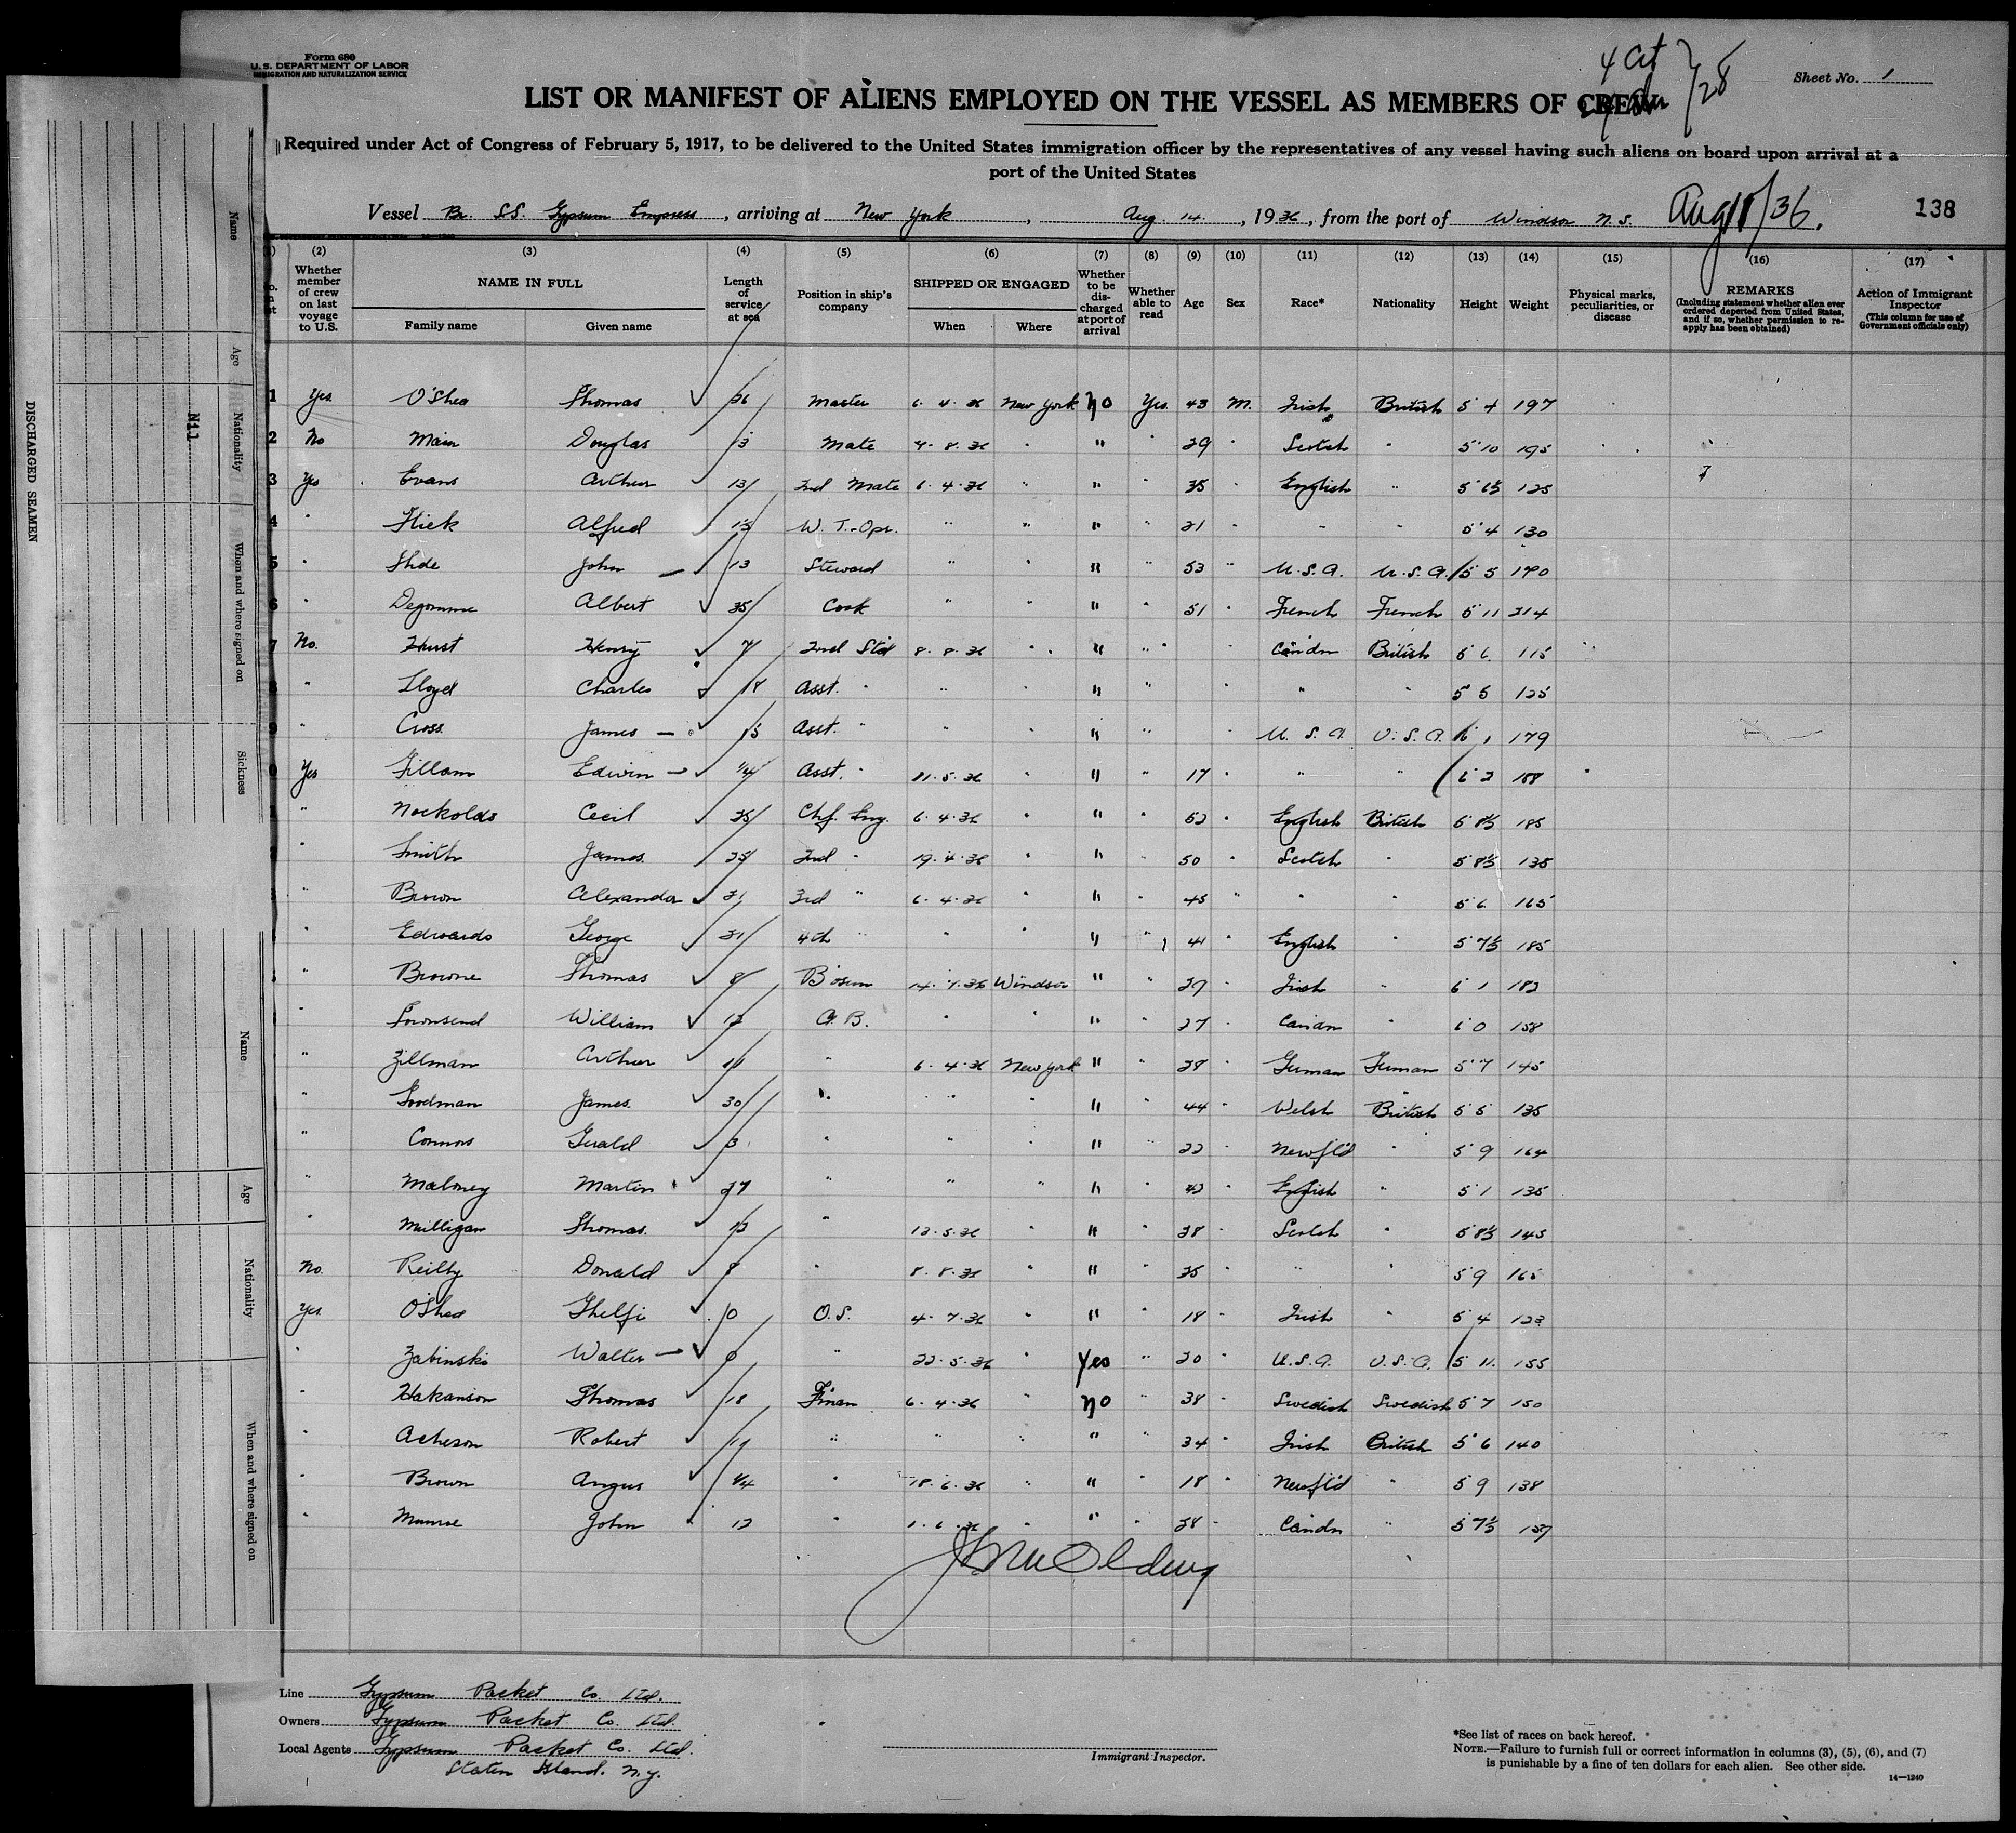 Form 680
U. S. DEPARTMENT OF LABOR
IMMIGRATION AND NATURALIZATION SERVICE
4 Cit
/28
Sheet No. 1
LIST OR MANIFEST OF ALIENS EMPLOYED ON THE VESSEL AS MEMBERS OF CREW
Required under Act of Congress of February 5, 1917, to be delivered to the United States immigration officer by the representatives of any vessel having such aliens on board upon arrival at a
port of the United States
Vessel Br. SS. Gypsum Empress, arriving at New York, Aug. 14, 1936, from the port of Windsor N.S. 138
(2) (3) (4) (5) (6) (7) (8) (9) (10) (11) (12) (13) (14) (15) (16) (17)
Whether member of crew on last voyage to U.S. NAME IN FULL Family name Given name Length of service at sea Position in ship's company SHIPPED OR ENGAGED When Where Whether to be discharged at port of arrival Whether able to read Age Sex Race* Nationality Height Weight Physical marks, peculiarities, or disease REMARKS (Including statement whether alien ever ordered deported from United States, and if so, whether permission to reapply has been obtained) Action of Immigrant Inspector (This column for use of Government officials only)
1 Yes O'Shea Thomas 26 Master 6.4.36 New York No Yes 43 M. Irish British 5 4 197
2 No Main Douglas 13 Mate 4.8.36 " " " 29 " Scotch " 5 10 195
3 Yes Evans Arthur 13 2nd Mate 6.4.36 " " " 35 " English " 5 6½ 125
4 " Flick Alfred W. T. Opr. " " " " 21 " " " 5 4 130
5 " John 13 Steward " " " " 53 " U.S.A. U.S.A. 5 5 190
6 " Degomme Albert 35 Cook " " " " 51 " French French 5 11 214
7 No. Hurst Henry 7 2nd Std 8.8.36 " " " " Candn British 5 6 115
" Lloyd Charles 18 Asst. " " " " " " " " 5 5 125
9 " Cross James Asst. " " " " " " U.S.A. U.S.A. 6 1 179
Yes Gillam Edwin ¼ Asst. " 11.5.36 " " " 17 " " " 6 2 158
" Nockolds Cecil 35 Chf. Eng. 6.4.36 " " " 52 " English British 5 8½ 185
" Smith James 25 2nd " 19.4.36 " " " 50 " Scotch " 5 8½ 135
" Brown Alexander 3rd " 6.4.36 " " " 45 " " " 5 6 165
" Edwards George 21 4th " " " " " 41 " English " 5 7½ 185
" Browne Thomas 8 B'osum 14.7.36 Windsor " " 29 " Irish " 6 1 182
" Townsend William 12 A.B. " " " " 27 " Candn " 6 0 158
" Zillman Arthur " 6.4.36 New York " " 28 " German German 5 7 145
" Goodman James 30 " " " " " 44 " Welsh British 5 5 135
" Connors Gerald 3 " " " " " 22 " Newfl'd " 5 9 164
" Maloney Martin 27 " " " " " 42 " English " 5 1 135
" Milligan Thomas 12 " 12.5.36 " " " 28 " Scotch " 5 8½ 145
No. Reilly Donald 8 " 8.8.36 " " " 25 " " " 5 9 165
Yes O'Shea 0 O.S. 4.7.36 " " " 18 " Irish " 5 4 123
" Zabinski Walter 0 " 22.5.36 " Yes " 20 " U.S.A. U.S.A. 5 11 155
" Hakanson Thomas 18 F'man 6.4.36 " No " 38 " Swedish Swedish 5 7 150
" Acheson Robert " " " " " 34 " Irish British 5 6 140
" Brown Angus ¼ " 18.6.36 " " " 18 " Newfl'd " 5 9 138
" Munroe John 12 " 1.6.36 " " " 28 " Candn " 5 7½
Line Gypsum Packet Co. Ltd.
Owners Gypsum Packet Co. Ltd.
Local Agents Gypsum Packet Co. Ltd.
Staten Island. N.Y.
Immigrant Inspector.
*See list of races on back hereof.
NOTE.—Failure to furnish full or correct information in columns (3), (5), (6), and (7)
is punishable by a fine of ten dollars for each alien. See other side.
14—1240
DISCHARGED SEAMEN
Nil
Name
Age
Nationality
When and where signed on
Sickness
Name
Age
Nationality
When and where signed on